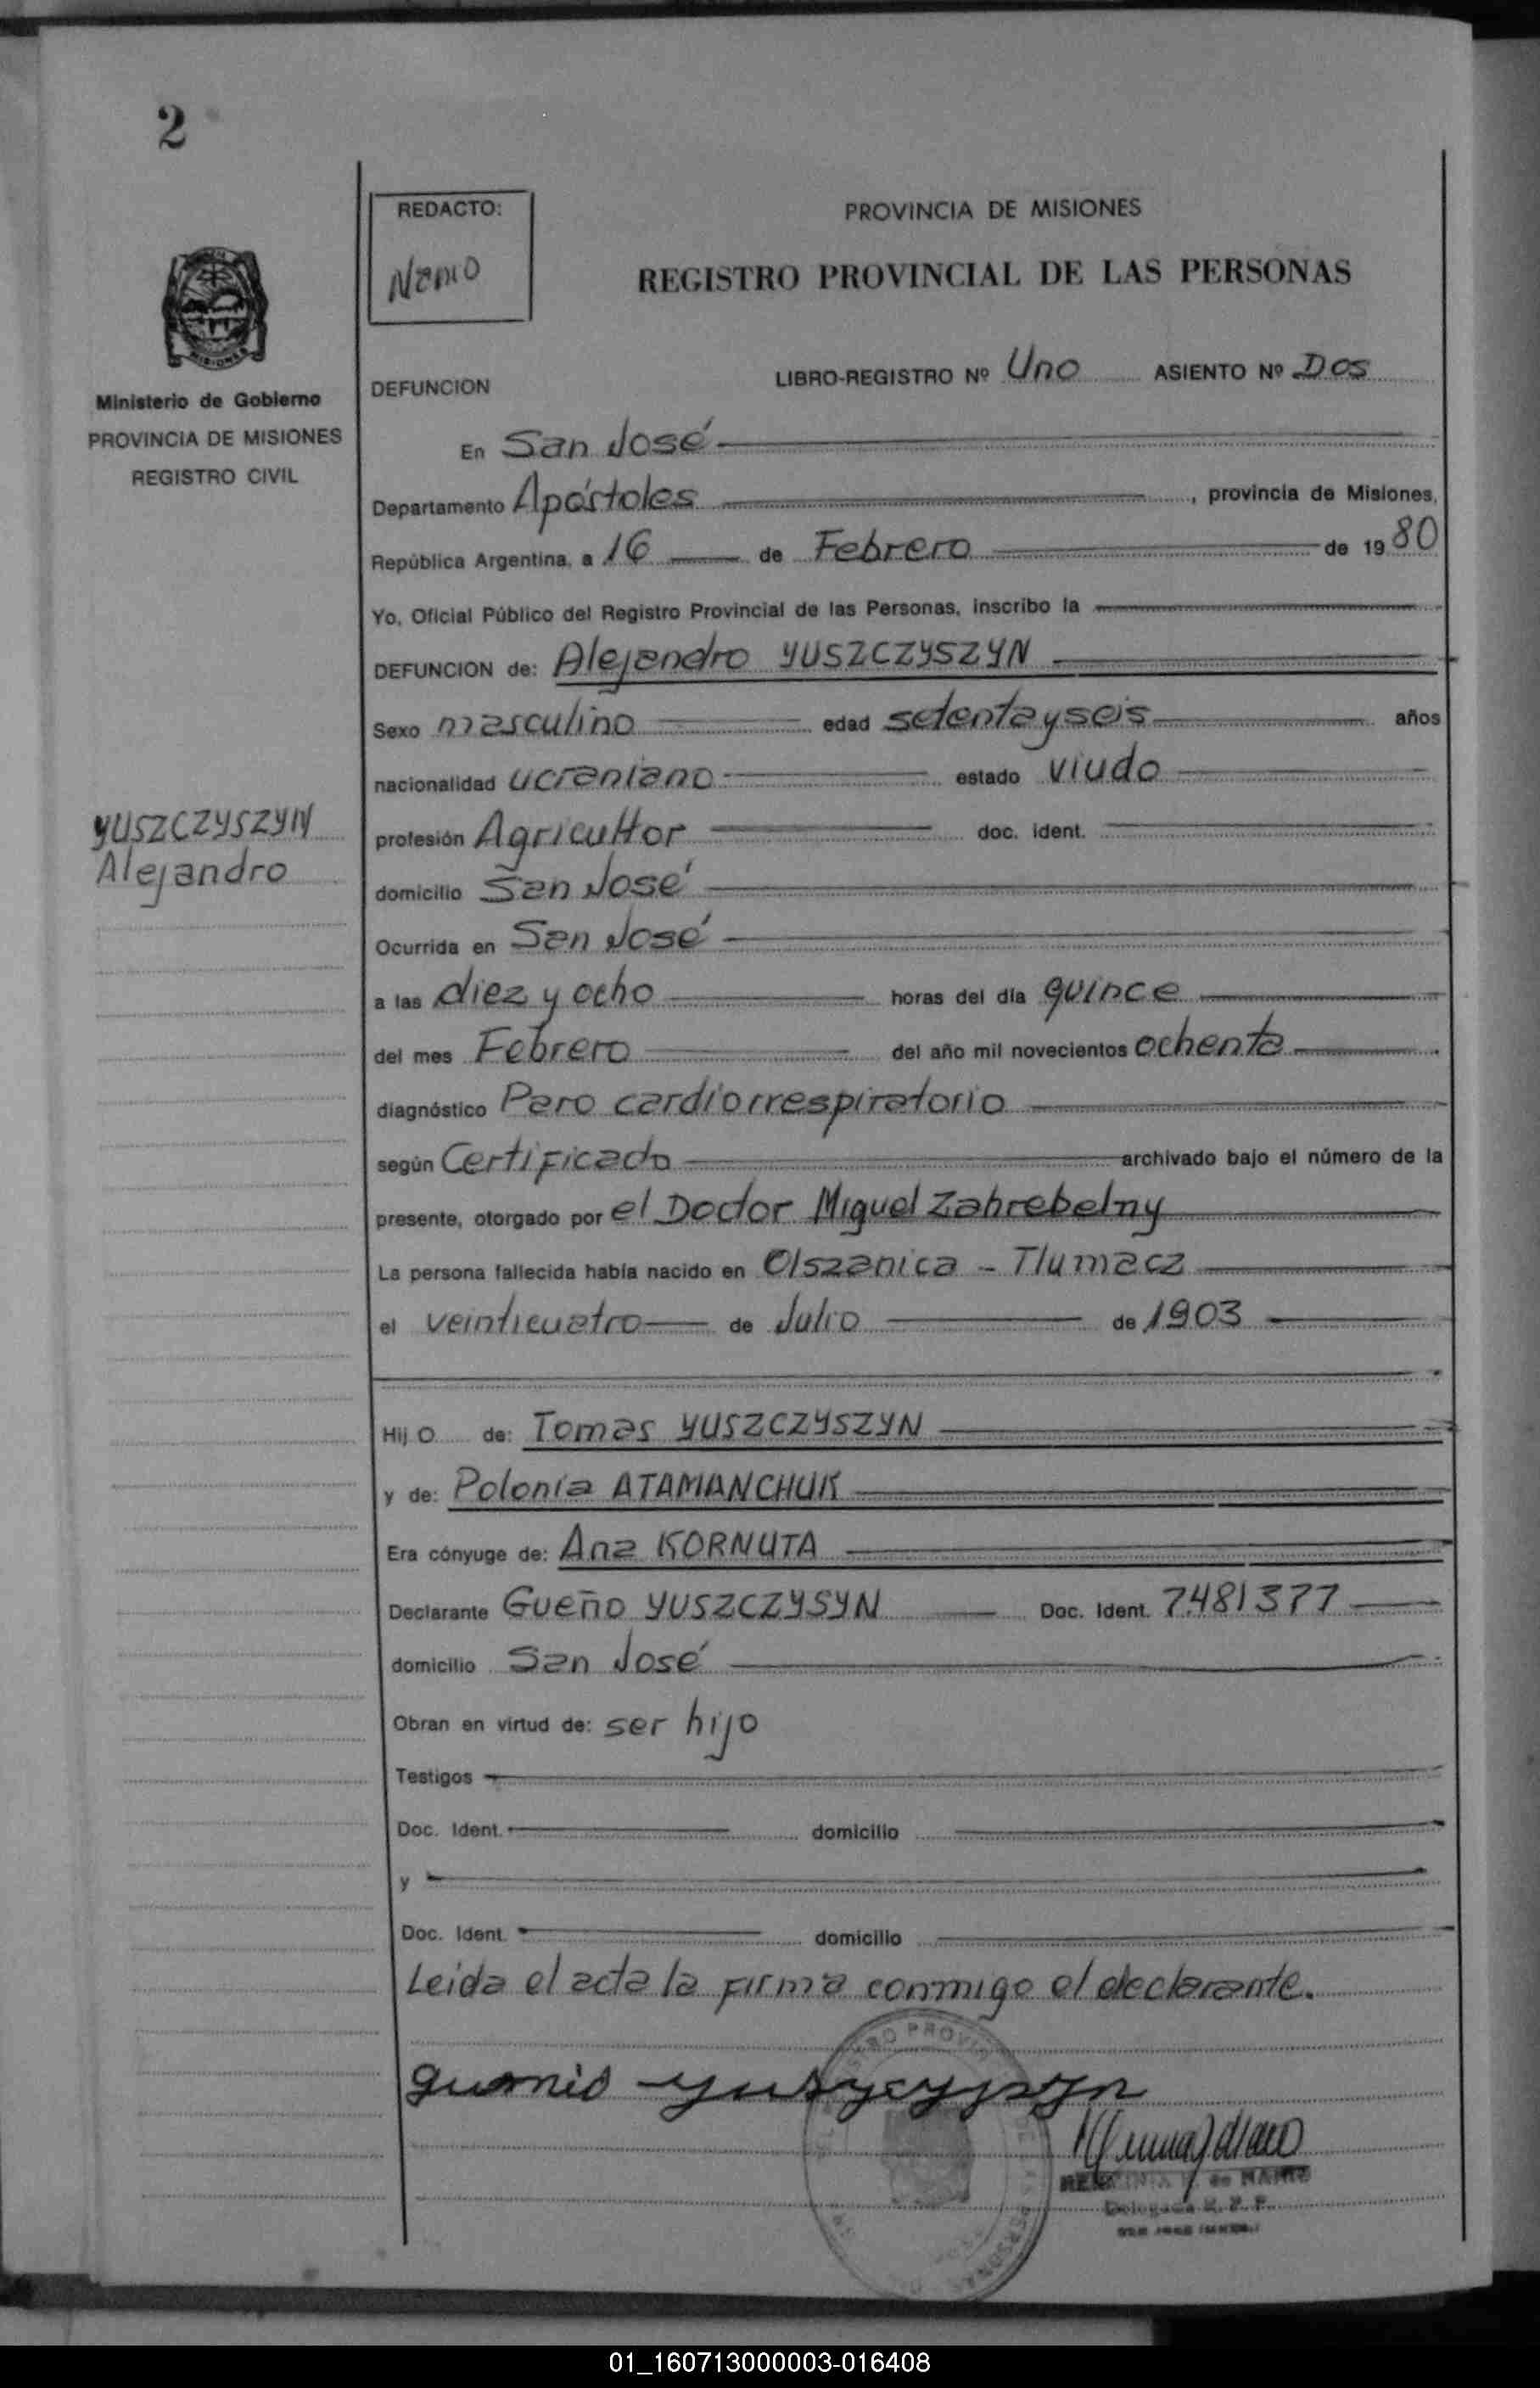 2
REDACTO:
PROVINCIA DE MISIONES
REGISTRO PROVINCIAL DE LAS PERSONAS
MISIONES
Ministerio de Gobierno
PROVINCIA DE MISIONES
REGISTRO CIVIL
DEFUNCION
LIBRO-REGISTRO Nº Uno ASIENTO Nº Dos
En San José
Departamento Apóstoles, provincia de Misiones,
República Argentina, a 16 de Febrero de 1980
Yo, Oficial Público del Registro Provincial de las Personas, inscribo la
DEFUNCION de: Alejandro YUSZCZYSZYN
Sexo masculino edad setenta y seis años
nacionalidad ucraniano estado viudo
YUSZCZYSZYN
Alejandro
profesión Agricultor doc. ident.
domicilio San José
Ocurrida en San José
a las diez y ocho horas del día quince
del mes Febrero del año mil novecientos ochenta
diagnóstico Paro cardiorrespiratorio
según Certificado archivado bajo el número de la
presente, otorgado por el Doctor Miguel Zahrebelny
La persona fallecida había nacido en Olszanica - Tlumacz
el veinticuatro de Julio de 1903
Hijo de: Tomas YUSZCZYSZYN
y de: Polonia ATAMANCHUK
Era cónyuge de: Ana KORNUTA
Declarante Gueño YUSZCZYSYN Doc. Ident. 7.481377
domicilio San José
Obran en virtud de: ser hijo
Testigos
Doc. Ident. domicilio
y
Doc. Ident. domicilio
Leida el acta la firma conmigo el declarante.
01_160713000003-016408